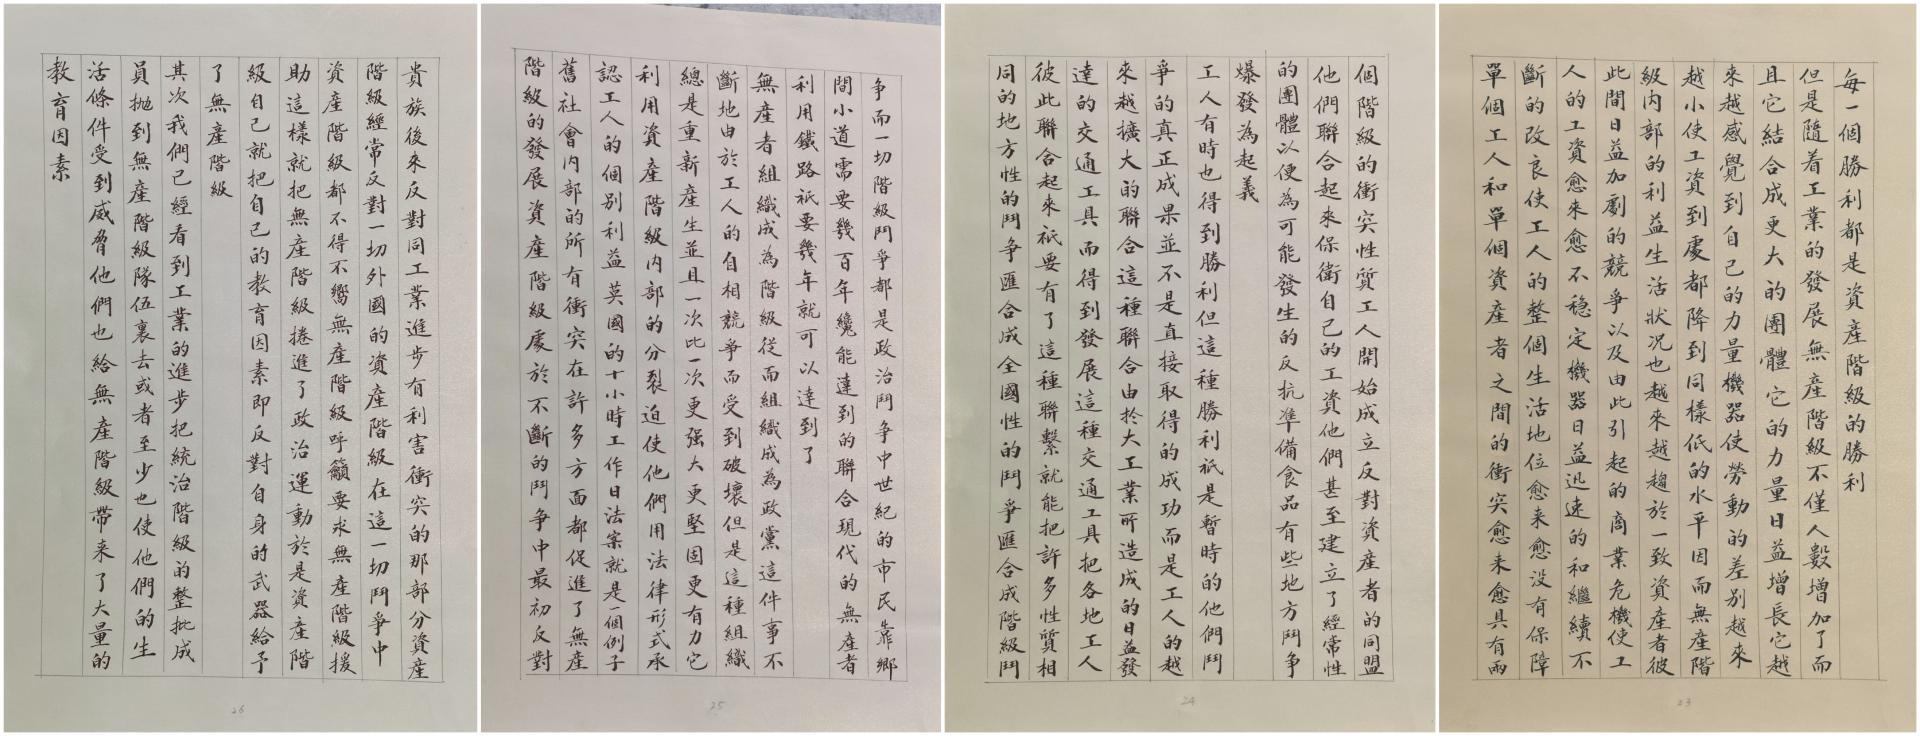 每一個勝利都是資產階級的勝利
但是隨着工業的發展無產階級不僅人數增加了而
且它結合成更大的團體它的力量日益增長它越
來越感覺到自己的力量機器使勞動的差別越來
越小使工資到處都降到同樣低的水平因而無產階
級內部的利益生活狀況也越來越趨於一致資產者彼
此間日益加劇的競爭以及由此引起的商業危機使工
人的工資愈來愈不穩定機器日益迅速的和繼續不
斷的改良使工人的整個生活地位愈來愈沒有保障
單個工人和單個資產者之間的衝突愈來愈具有兩
23
個階級的衝突性質工人開始成立反對資產者的同盟
他們聯合起來保衛自己的工資他們甚至建立了經常性
的團體以便為可能發生的反抗準備食品有些地方鬥爭
爆發為起義
工人有時也得到勝利但這種勝利祇是暫時的他們鬥
爭的真正成果並不是直接取得的成功而是工人的越
來越擴大的聯合這種聯合由於大工業所造成的日益發
達的交通工具而得到發展這種交通工具把各地工人
彼此聯合起來祇要有了這種聯繫就能把許多性質相
同的地方性的鬥爭匯合成全國性的鬥爭匯合成階級鬥
24
爭而一切階級鬥爭都是政治鬥爭中世紀的市民靠鄉
間小道需要幾百年纔能達到的聯合現代的無產者
利用鐵路祇要幾年就可以達到了
無產者組織成為階級從而組織成為政黨這件事不
斷地由於工人的自相競爭而受到破壞但是這種組織
總是重新產生並且一次比一次更强大更堅固更有力它
利用資產階級內部的分裂迫使他們用法律形式承
認工人的個別利益英國的十小時工作日法案就是一個例子
舊社會內部的所有衝突在許多方面都促進了無產
階級的發展資產階級處於不斷的鬥爭中最初反對
25
貴族後來反對同工業進步有利害衝突的那部分資產
階級經常反對一切外國的資產階級在這一切鬥爭中
資產階級都不得不嚮無產階級呼籲要求無產階級援
助這樣就把無產階級捲進了政治運動於是資產階
級自己就把自己的教育因素即反對自身的武器給予
了無產階級
其次我們已經看到工業的進步把統治階級的整批成
員拋到無產階級隊伍裏去或者至少也使他們的生
活條件受到威脅他們也給無產階級帶來了大量的
教育因素
26